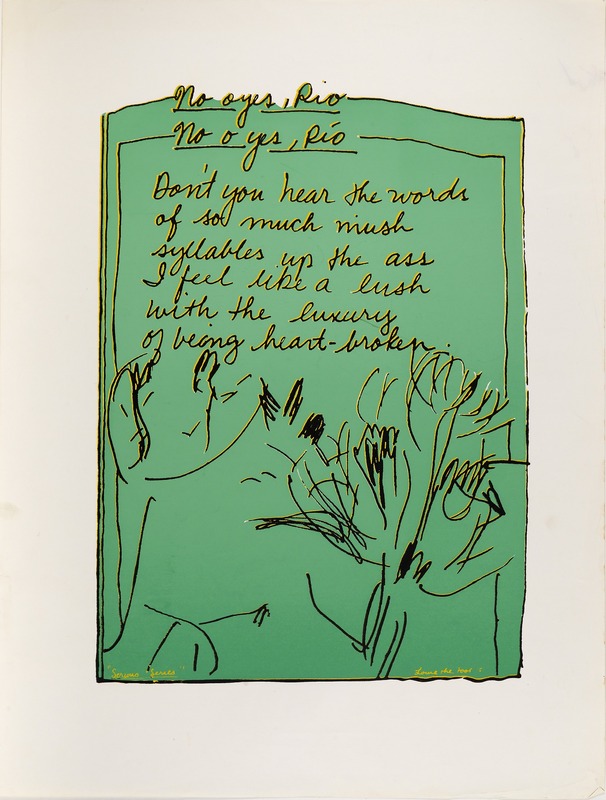 No oyes, Rio
No o yes, Río
Don't you hear the words
of so much mush
syllables up the ass
I feel like a lush
with the luxury
of being heart-broken.
"Series"
the